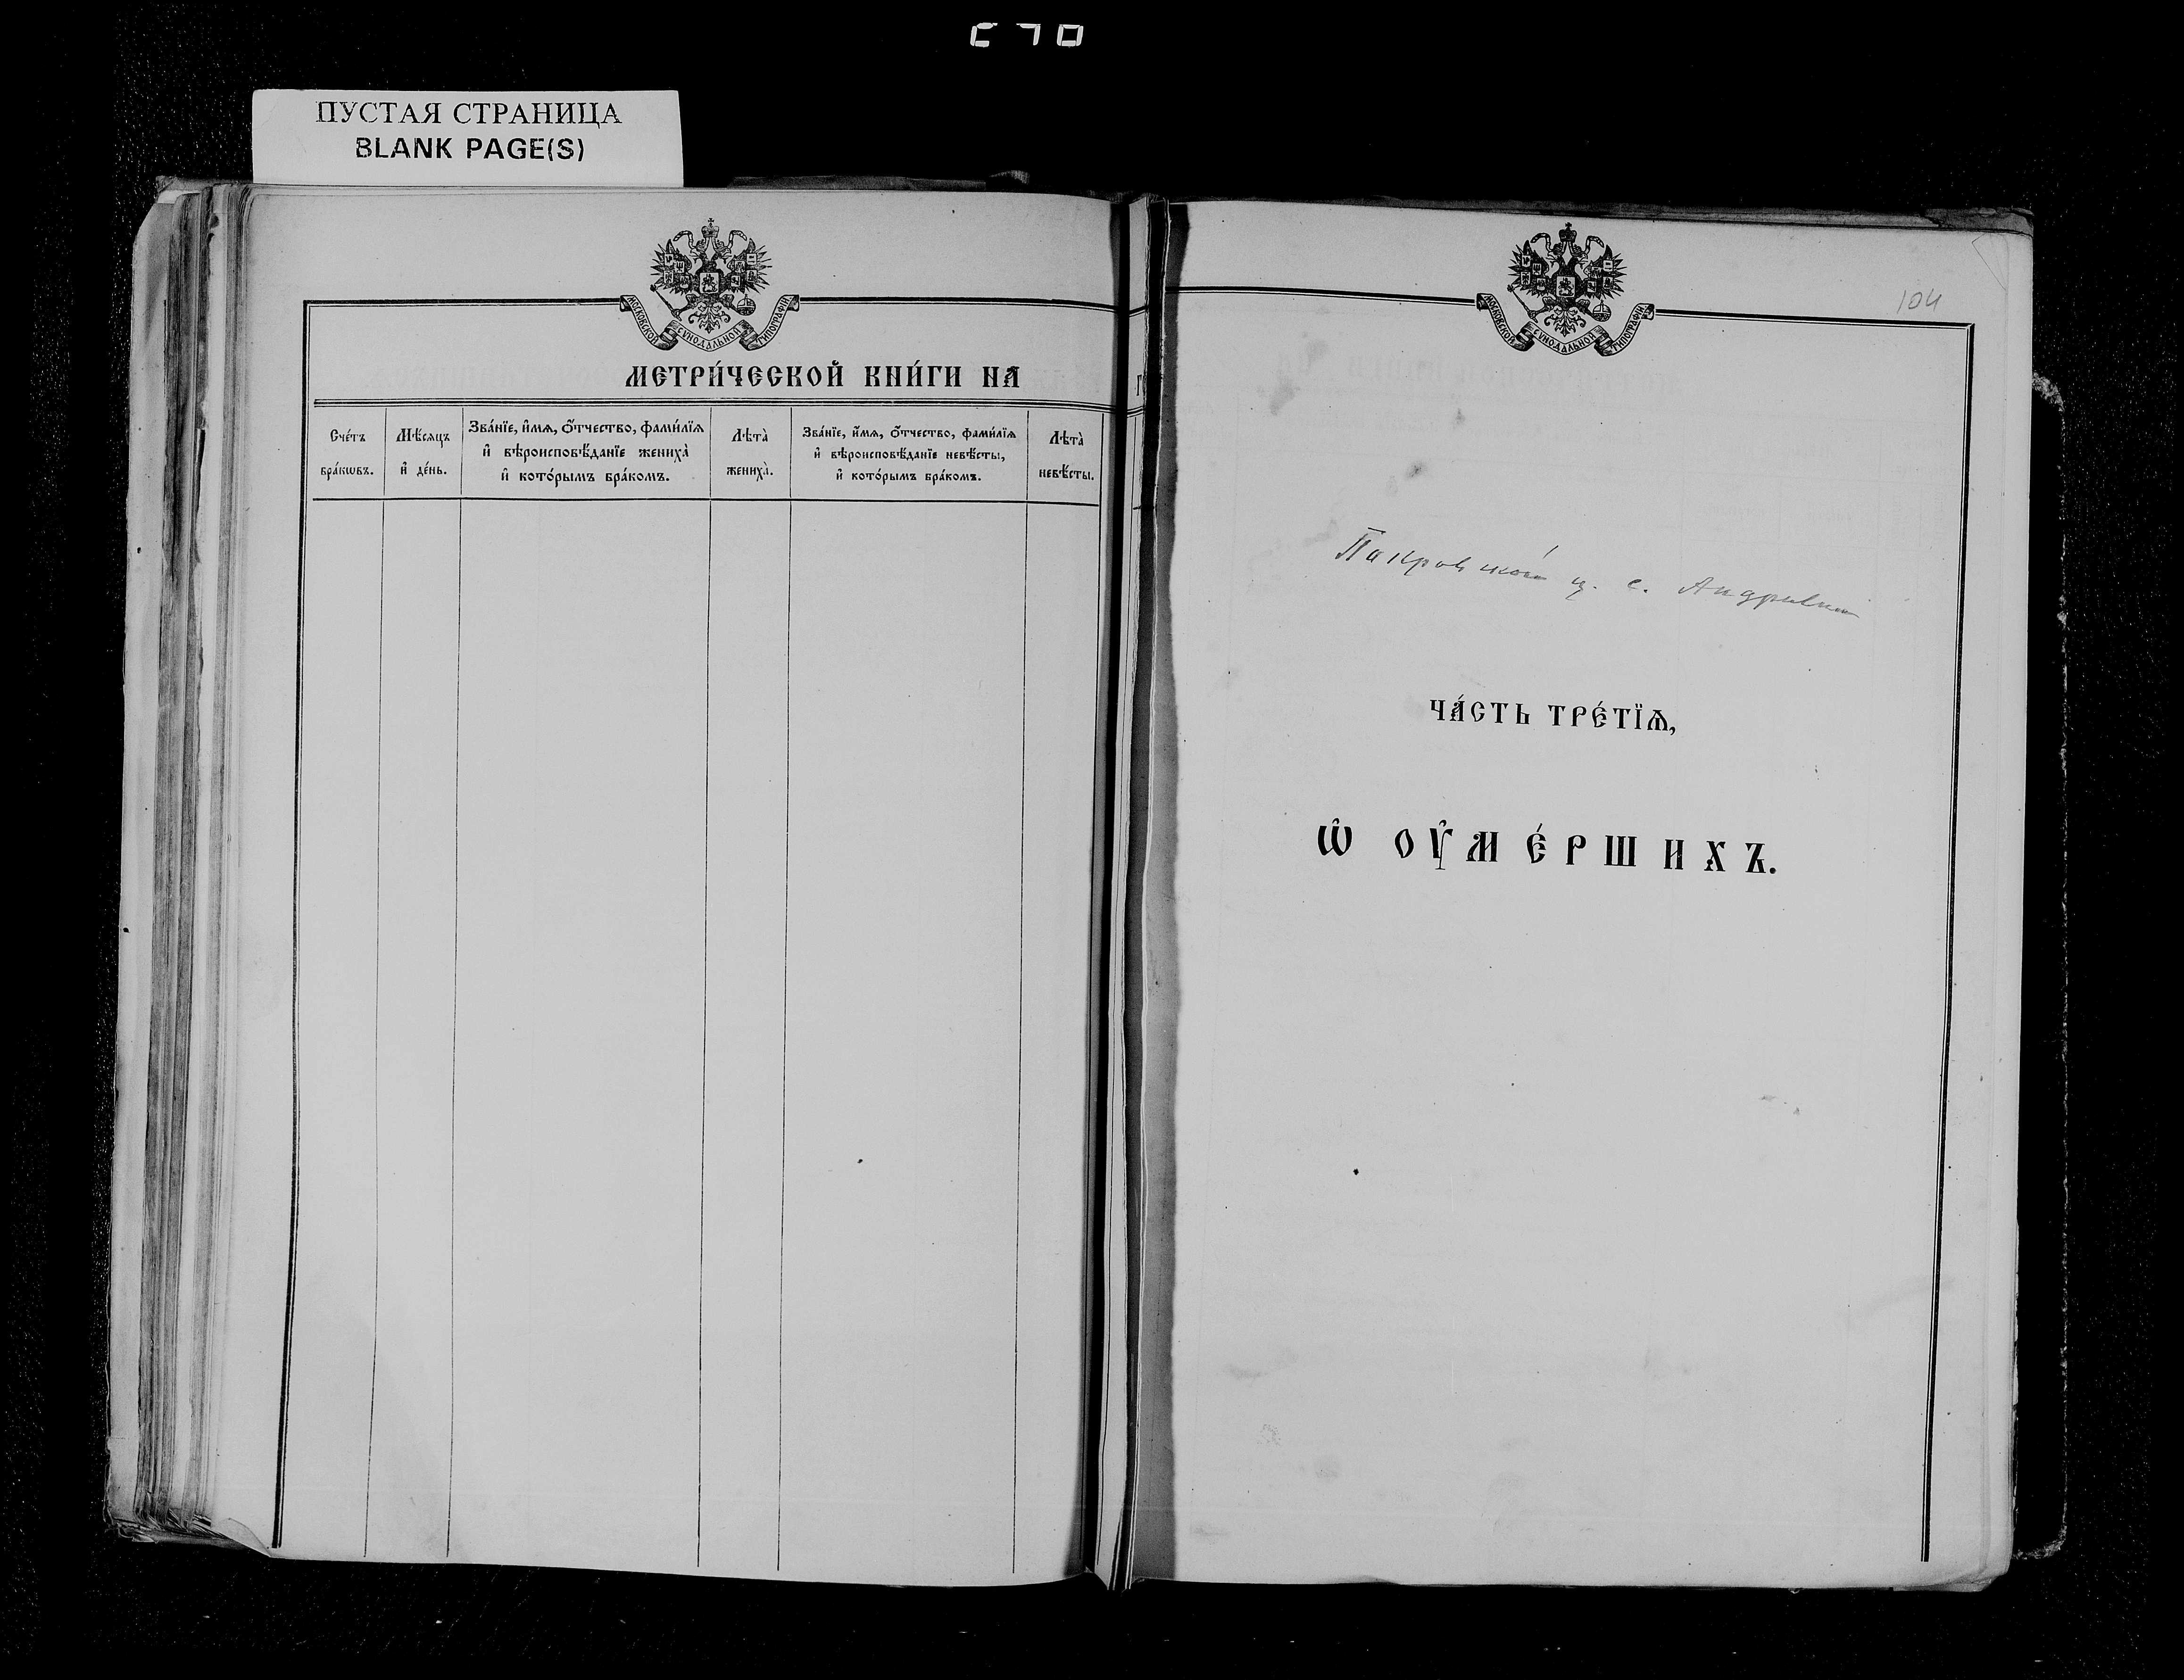 ПУСТАЯ СТРАНИЦА
BLANK PAGE(S)
МОСКОВСКОЙ СѴНОДАЛЬНОЙ ТИПОГРАФІИ
МЕТРИ́ЧЕСКОЙ КНИ́ГИ НА
Сче́тъ бра́кѡвъ.
Мѣ́сяцъ и҆ де́нь.
Зва́нїе, и҆́мѧ, ѻ҆́тчество, фами́лїѧ и҆ вѣроисповѣ́данїе жениха̀ и҆ кото́рымъ бра́комъ.
Лѣта̀ жениха̀.
Зва́нїе, и҆́мѧ, ѻ҆́тчество, фами́лїѧ и҆ вѣроисповѣ́данїе невѣ́сты, и҆ кото́рымъ бра́комъ.
Лѣта̀ невѣ́сты.
МОСКОВСКОЙ СѴНОДАЛЬНОЙ ТИПОГРАФІИ
104
Покровской ц. с.
ЧА́СТЬ ТРЕ́ТЇѦ,
Ѡ҆ ОУ҆МЕ́РШИХЪ.